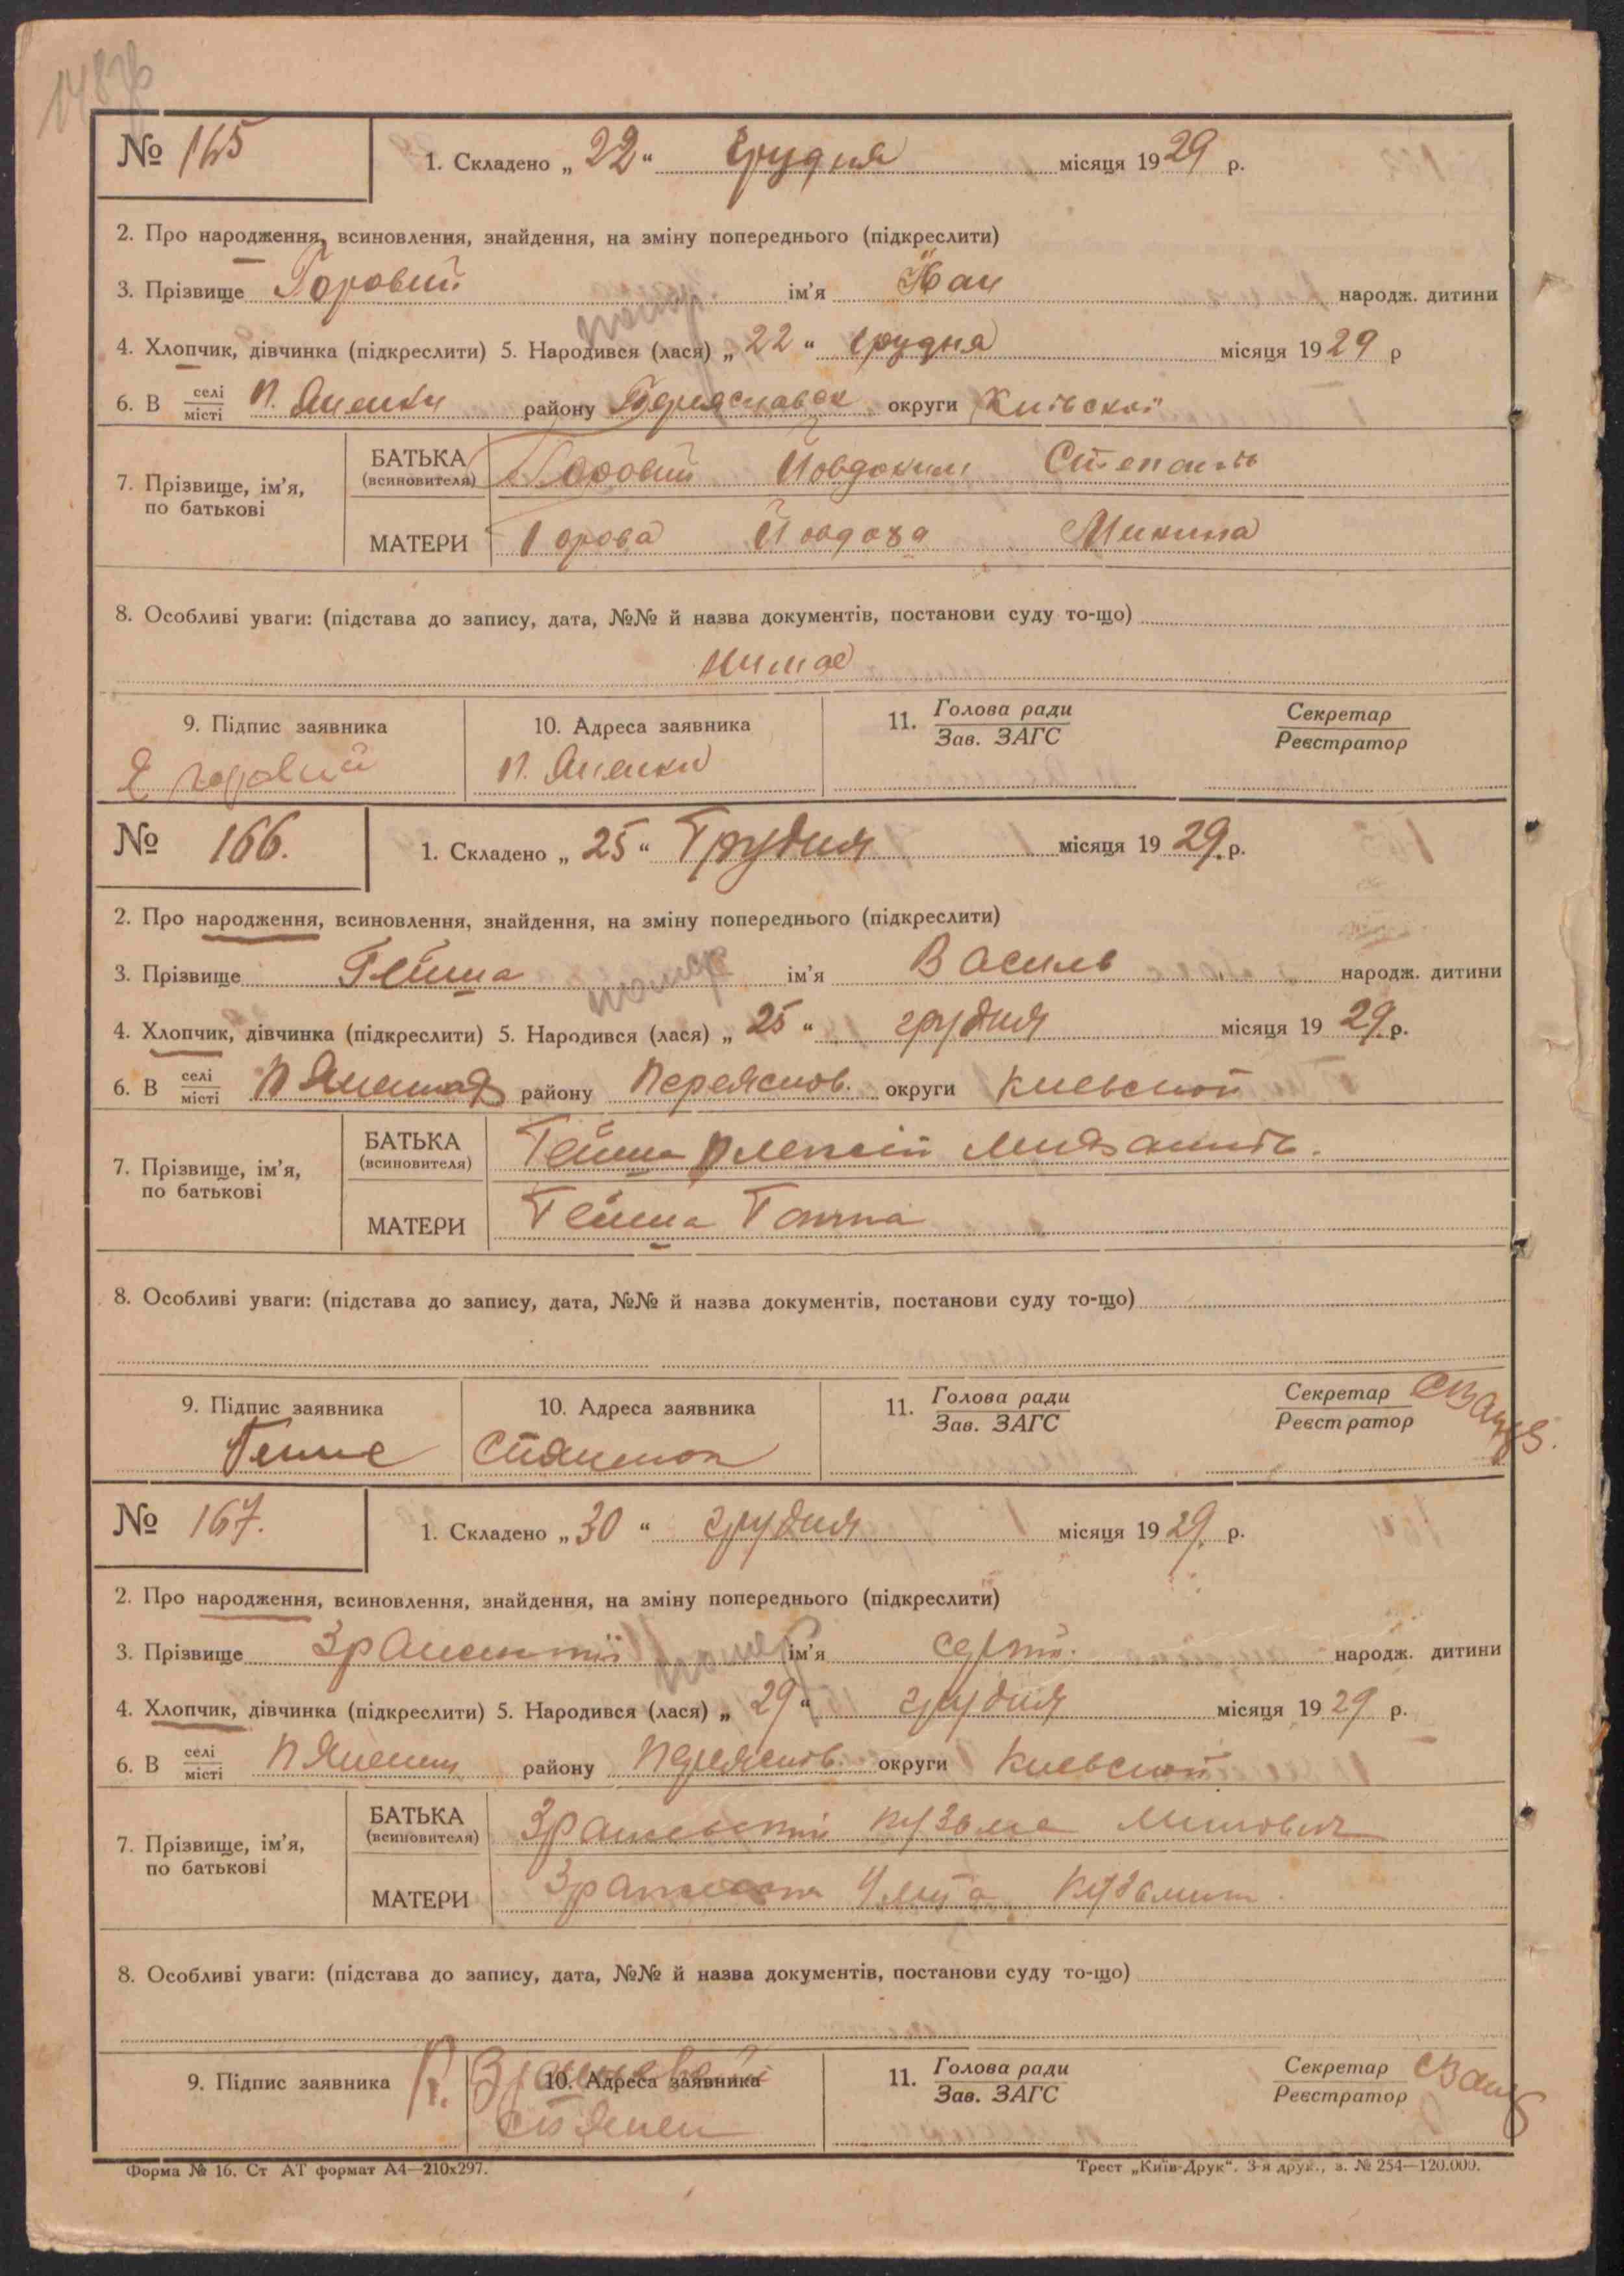 148
№ 165
1. Складено „ 22 “ грудня місяця 1929 р.
2. Про народження, всиновлення, знайдення, на зміну попереднього (підкреслити)
3. Прізвище Горовий ім’я Йван народж. дитини
помер
4. Хлопчик, дівчинка (підкреслити) 5. Народився (лася) „ 22 “ грудня місяця 1929 р
6. В селі/місті П. Яненки району округи Київскої
7. Прізвище, ім’я, по батькові
БАТЬКА (всиновителя) Горовий Йовдоким Степанів
МАТЕРИ Горова Йовдоха Микина
8. Особливі уваги: (підстава до запису, дата, №№ й назва документів, постанови суду то-що)
нимае
9. Підпис заявника
10. Адреса заявника
11. Голова ради / Зав. ЗАГС
Секретар / Реєстратор
Горовий
П. Яненки
№ 166.
1. Складено „ 25 “ Грудня місяця 1929 р.
2. Про народження, всиновлення, знайдення, на зміну попереднього (підкреслити)
3. Прізвище Гейша ім’я Василь народж. дитини
помер
4. Хлопчик, дівчинка (підкреслити) 5. Народився (лася) „ 25 “ грудня місяця 1929 р.
6. В селі/місті району Переяслов. округи Киевской
7. Прізвище, ім’я, по батькові
БАТЬКА (всиновителя) Гейша Олексій
МАТЕРИ Гейша Ганна
8. Особливі уваги: (підстава до запису, дата, №№ й назва документів, постанови суду то-що)
9. Підпис заявника
10. Адреса заявника
11. Голова ради / Зав. ЗАГС
Секретар / Реєстратор
№ 167.
1. Складено „ 30 “ грудня місяця 1929 р.
2. Про народження, всиновлення, знайдення, на зміну попереднього (підкреслити)
3. Прізвище ім’я Сергій. народж. дитини
помер
4. Хлопчик, дівчинка (підкреслити) 5. Народився (лася) „ 29 “ грудня місяця 1929 р.
6. В селі/місті П Яненки району Переяслов. округи Киевской
7. Прізвище, ім’я, по батькові
БАТЬКА (всиновителя) Кузьма
МАТЕРИ
8. Особливі уваги: (підстава до запису, дата, №№ й назва документів, постанови суду то-що)
9. Підпис заявника
10. Адреса заявника
11. Голова ради / Зав. ЗАГС
Секретар / Реєстратор
Форма № 16. Ст АТ формат А4—210х297.
Трест „Київ-Друк“. 3-я друк., з. № 254—120.000.